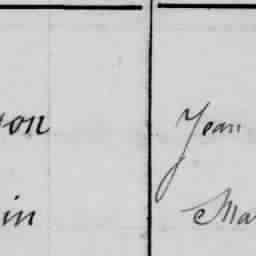 on Jean
in Ma